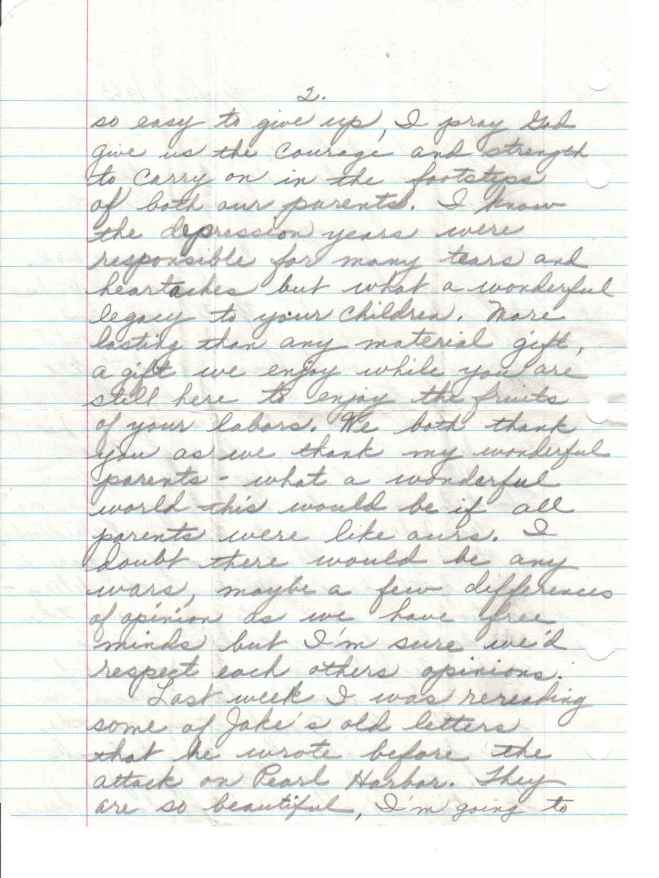 2.
so easy to give up, I pray God
give us the courage and strength
to carry on in the footsteps
of both our parents. I know
the depression years were
responsible for many tears and
heartaches but what a wonderful
legacy to your children. More
lasting than any material gift,
a gift we enjoy while you are
still here to enjoy the fruits
of your labors. We both thank
you as we thank my wonderful
parents - what a wonderful
world this would be if all
parents were like ours. I
doubt there would be any
wars, maybe a few differences
of opinion as we have free
minds but I'm sure we'd
respect each others opinions.
Last week I was rereading
some of Jake's old letters
that he wrote before the
attack on Pearl Harbor. They
are so beautiful, I'm going to